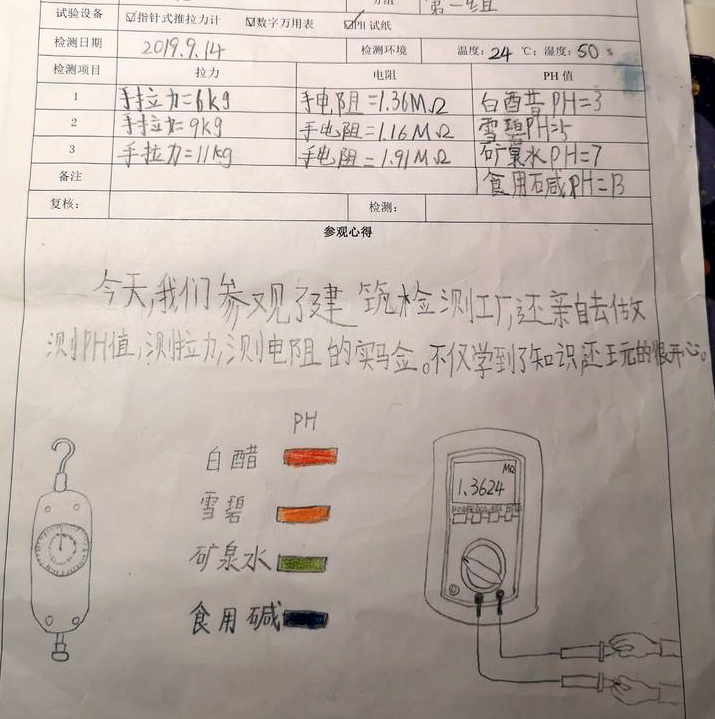 分组 第一组
试验设备 ☑指针式推拉力计 ☑数字万用表 ☑PH 试纸
检测日期 2019.9.14 检测环境 温度：24 ℃；湿度：50 %
检测项目 拉力 电阻 PH 值
1 手拉力=6kg 手电阻=1.36MΩ 白酉昔PH=3
2 手拉力=9kg 手电阻=1.16MΩ 雪碧PH=5
3 手拉力=11kg 手电阻=1.91MΩ 矿泉水PH=7
备注 食用石咸PH=13
复核： 检测：
参观心得
今天,我们参观了建筑检测工厂,还亲自去做
测PH值,测拉力,测电阻的实马金。不仅学到了知识还王元的很开心。
PH
白醋
雪碧
矿泉水
食用碱
MΩ
1.3624